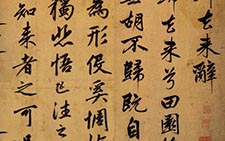 去來辭
去來兮田園
胡不歸既自
為形役奚惆悵
獨悲悟已往之
知来者之可追